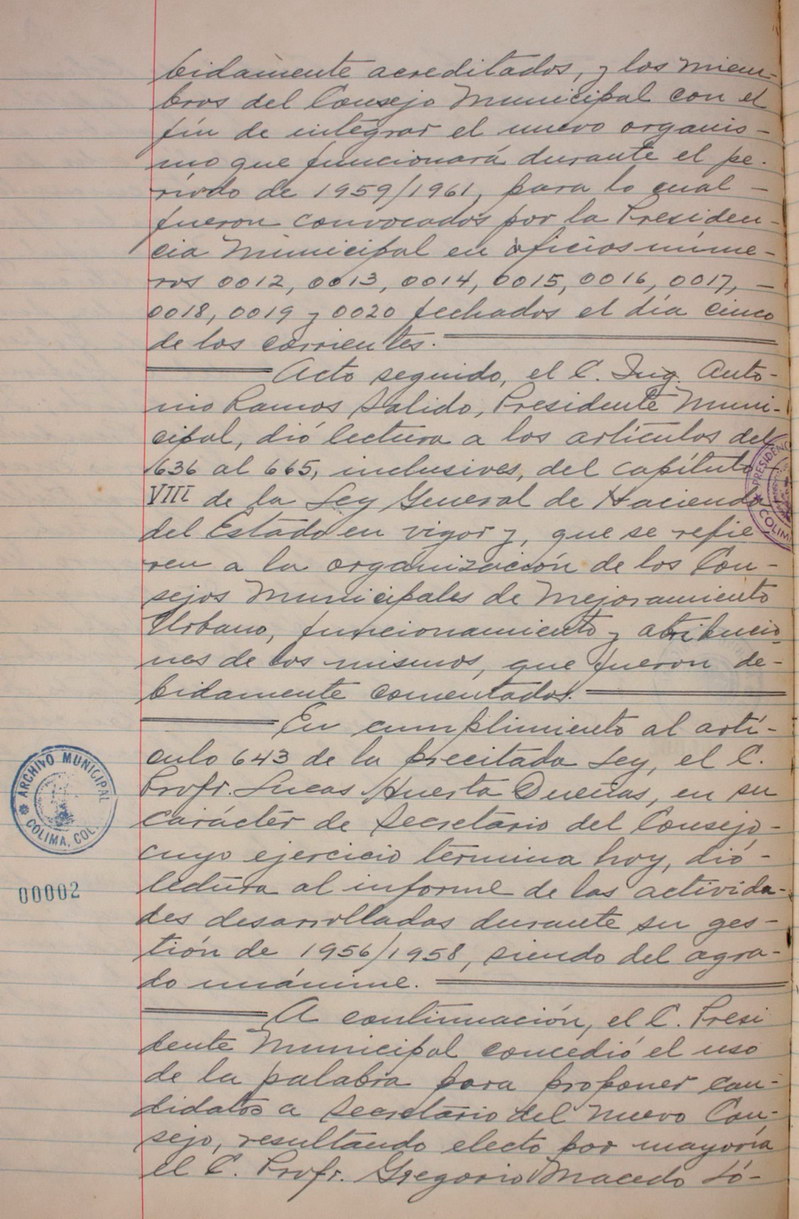 bidamente acreditados, y los miem-
bros del Consejo Municipal con el
fin de integrar el nuevo organis-
mo que funcionará durante el pe-
ríodo de 1959/1961, para lo cual -
fueron convocados por la Presiden-
cia Municipal en oficios núme-
ros 0012, 0013, 0014, 0015, 0016, 0017, -
0018, 0019 y 0020 fechados el día cinco
de los corrientes.
Acto seguido, el C. Ing. Anto-
nio Ramos Salido, Presidente Muni-
cipal, dió lectura a los artículos del
636 al 665, inclusives, del capítulo -
VIII de la Ley General de Hacienda
del Estado en vigor y, que se refie
ren a la organización de los Con-
sejos Municipales de Mejoramiento
Urbano, funcionamiento y atribucio
nes de los mismos, que fueron de-
bidamente comentados.
En cumplimiento al artí-
culo 643 de la precitada Ley, el C.
Profr. Lucas Huerta Dueñas, en su
carácter de Secretario del Consejo-
cuyo ejercicio termina hoy, dió-
lectura al informe de las activida-
des desarrolladas durante su ges-
tión de 1956/1958, siendo del agra-
do unánime.
A continuación, el C. Presi
dente Municipal concedió el uso
de la palabra para proponer can-
didatos a Secretario del nuevo Con-
sejo, resultando electo por mayoría
el C. Profr. Gregorio Macedo Ló-
ARCHIVO MUNICIPAL
COLIMA, COL.
00002
PRESIDENC
COLIMA